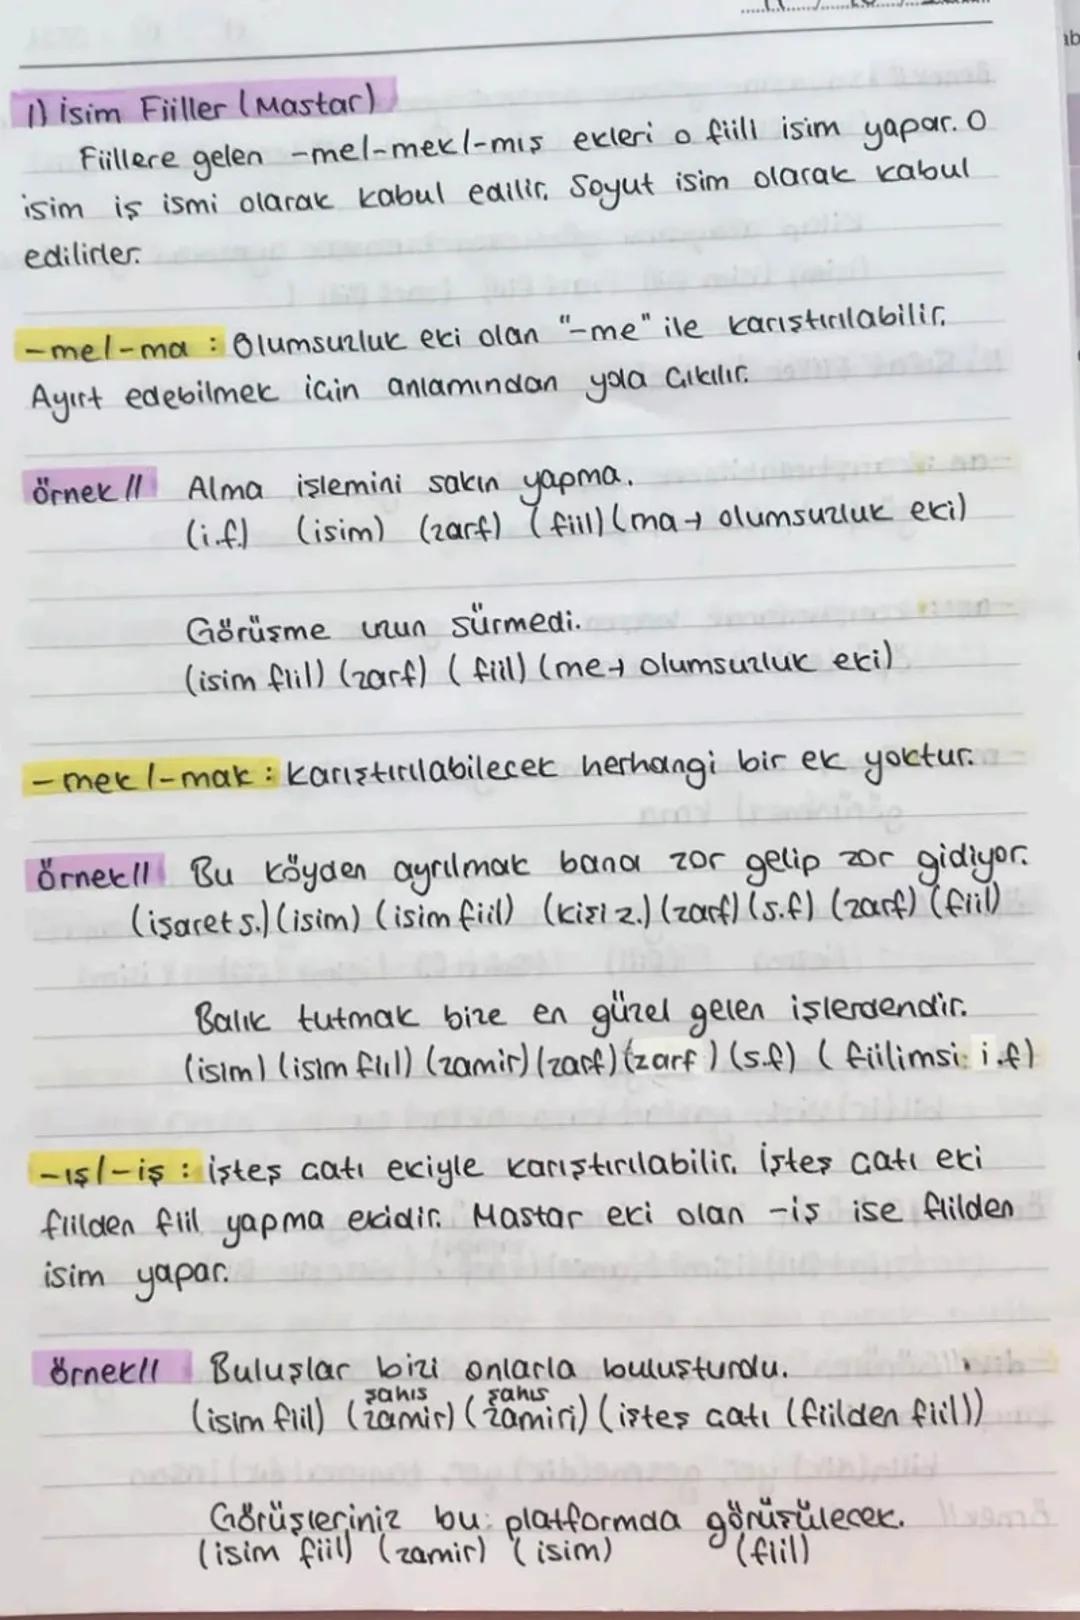 1) İsim Fiiller (Mastar)
Fiillere gelen -me/-mek/-mış ekleri o fiili isim yapar. O
isim iş ismi olarak kabul edilir. Soyut isim olarak kabul
edilirler.
-me/-ma : Olumsuzluk eki olan "-me" ile karıştırılabilir.
Ayırt edebilmek için anlamından yola çıkılır.
örnek // Alma işlemini sakın yapma.
(i.f.) (isim) (zarf) (fiil) (ma→ olumsuzluk eki)
Görüşme uzun sürmedi.
(isim fiil) (zarf) (fiil) (me→ olumsuzluk eki)
-mek/-mak : karıştırılabilecek herhangi bir ek yoktur.
örnek// Bu köyden ayrılmak bana zor gelip zor gidiyor.
(işaret s.) (isim) (isim fiil) (kişi z.) (zarf) (s.f) (zarf) (fiil)
Balık tutmak bize en güzel gelen işlerdendir.
(isim) (isim fiil) (zamir) (zarf) (zarf) (s.f) (fiilimsi: i.f)
-ış/-iş : işteş çatı ekiyle karıştırılabilir. İşteş çatı eki
fiilden fiil yapma ekidir. Mastar eki olan -iş ise fiilden
isim yapar.
örnek// Buluşlar bizi onlarla buluşturdu.
(isim fiil) (şahıs zamir) (şahıs zamiri) (işteş çatı (fiilden fiil))
Görüşleriniz bu platformda görüşülecek.
(isim fiil) (zamir) (isim) (fiil)